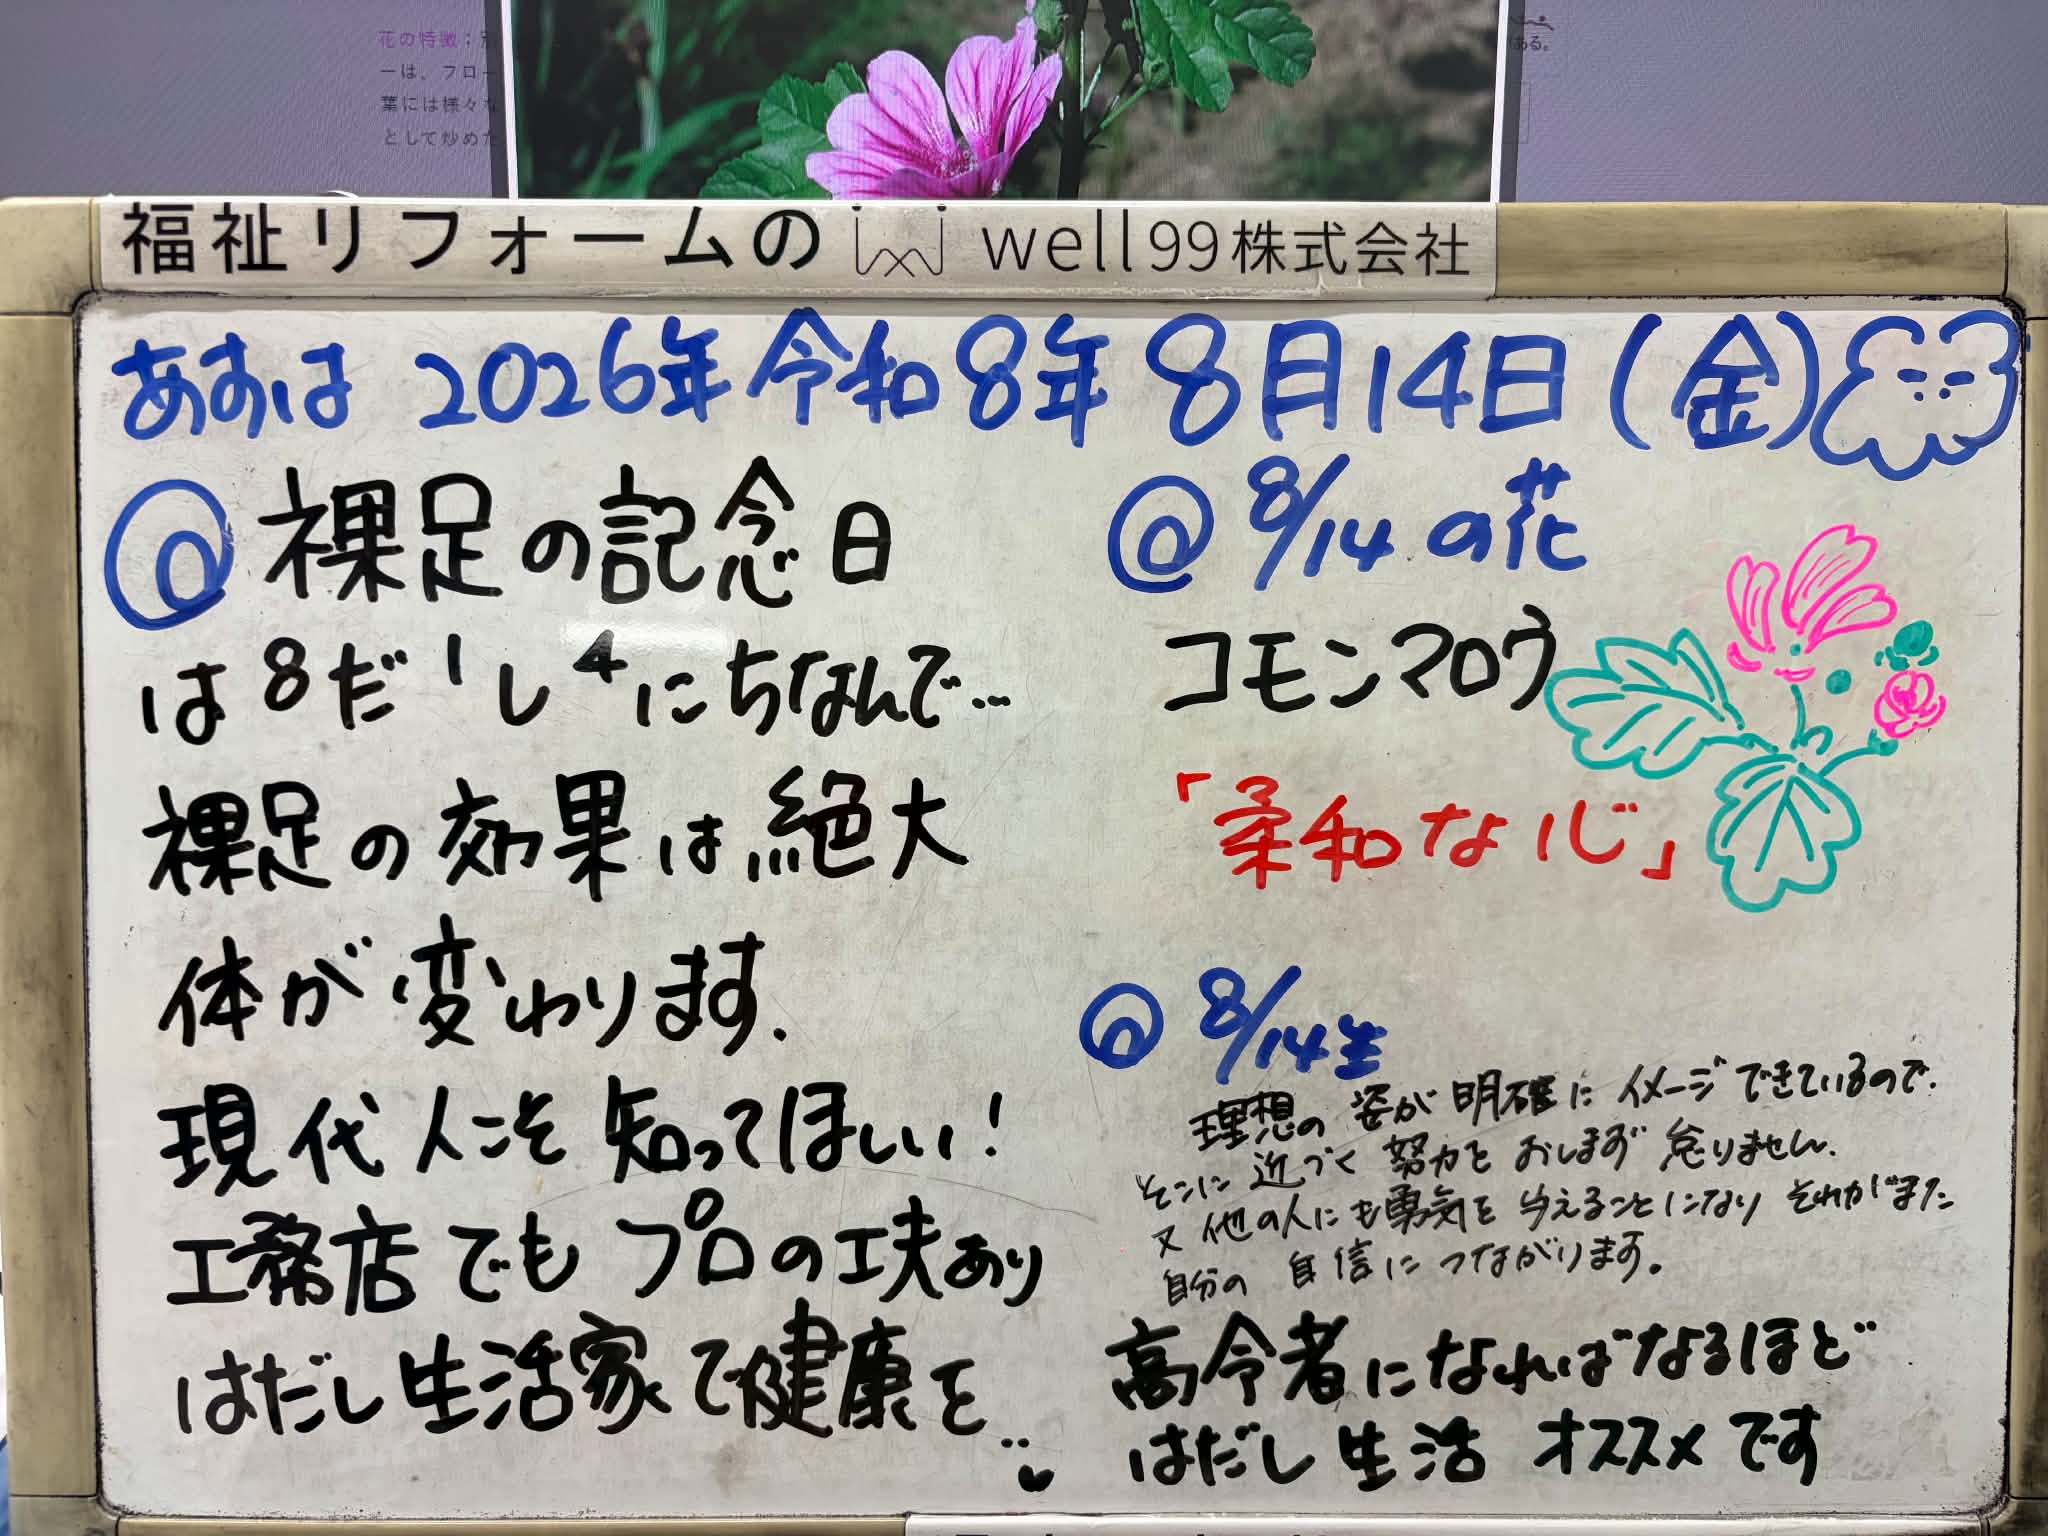 花の特徴：
ーは、フロー
葉には様々な
として炒めた
ある。
福祉リフォームの well99株式会社
あすは 2026年 令和8年 8月14日(金)
裸足の記念日
は8だ1し4にちなんで…
裸足の効果は絶大
体が変わります.
現代人こそ知ってほしい!
工務店でもプロの工夫あり
はだし生活家で健康を
@ 8/14の花
コモンマロウ
「柔和な心」
@ 8/14生
理想の姿が明確にイメージできているので.
そこに近づく努力をおしまず怠りません.
又他の人にも勇気を与えることになりそれがまた
自分の自信につながります。
高令者になればなるほど
はだし生活オススメです